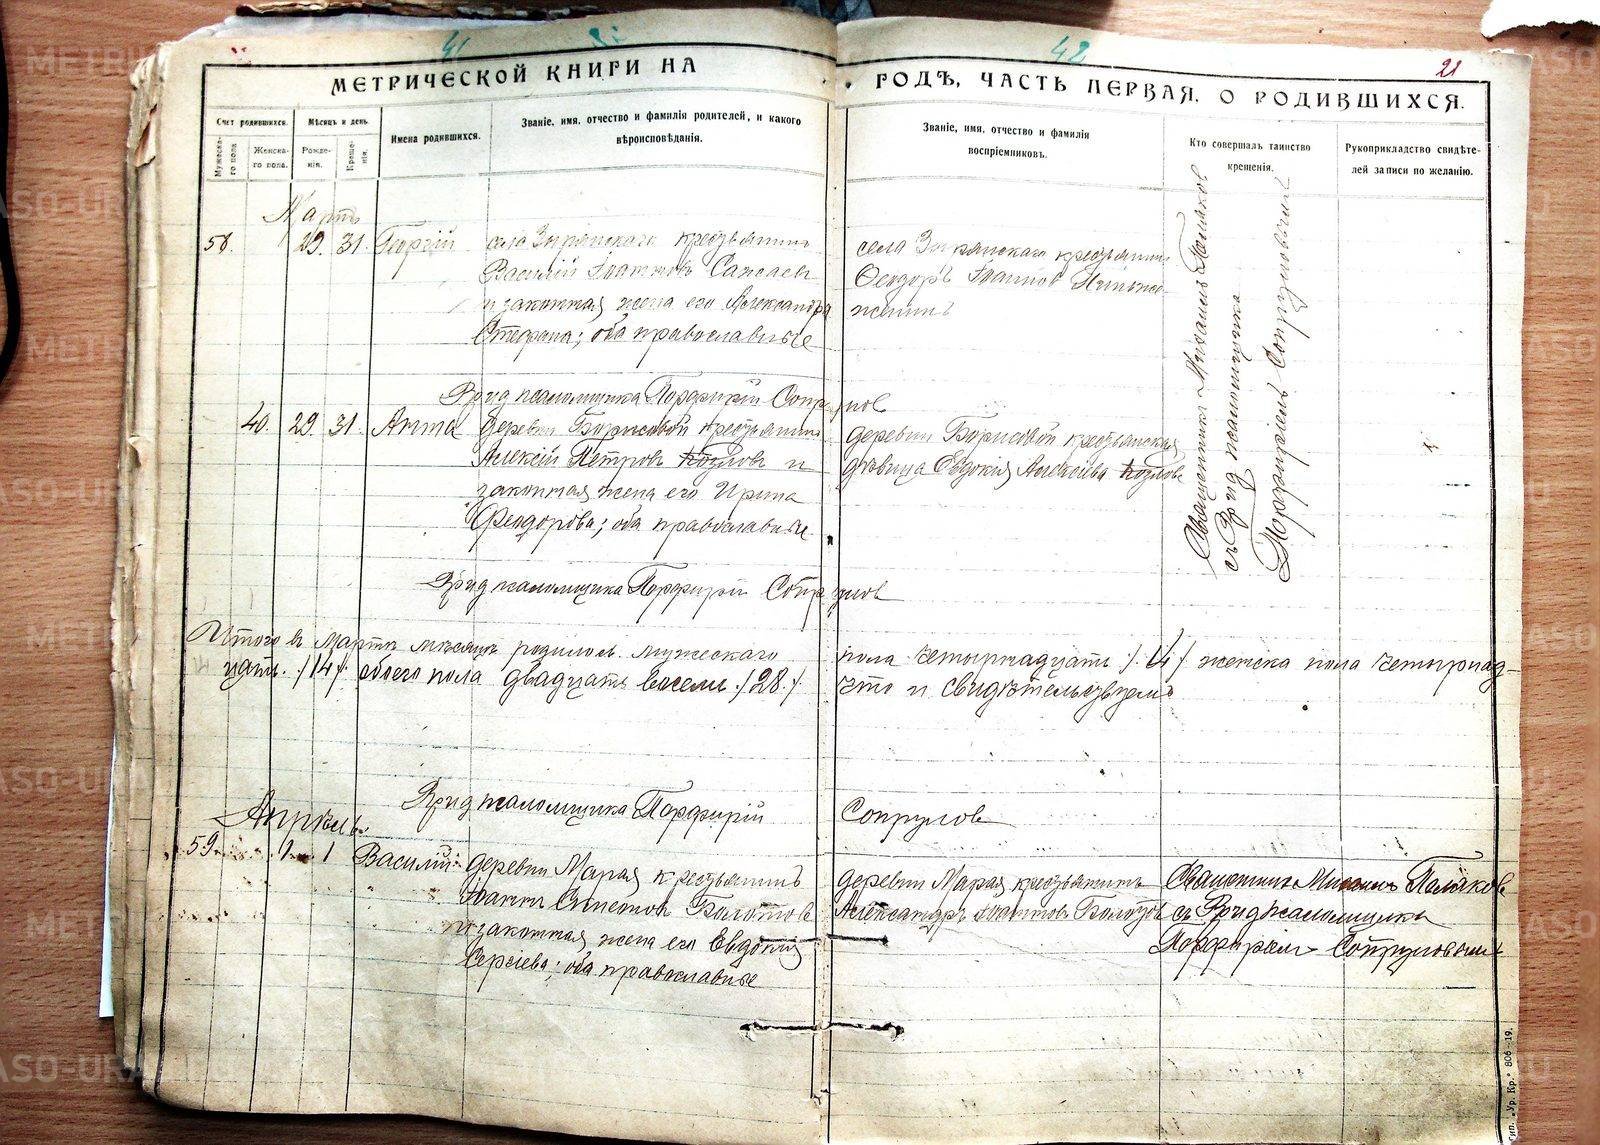 41
42
21
МЕТРИЧЕСКОЙ КНИГИ НА
ГОДЪ, ЧАСТЬ ПЕРВАЯ, О РОДИВШИХСЯ.
Счет родившихся.
Мужеска-го пола
Женска-го пола.
Мѣсяцъ и день
Рожде-нія.
Креще-нія.
Имена родившихся.
Званіе, имя, отчество и фамилія родителей, и какого
вѣроисповѣданія.
Званіе, имя, отчество и фамилія
воспріемниковъ.
Кто совершалъ таинство
крещенія.
Рукоприкладство свидѣте-
лей записи по желанію.
Мартъ
58. 29. 31. Георгій села Зырянскаго крестьянинъ
Василій Іоанновъ
и законная жена его Александра
оба православные
села Зырянскаго крестьянинъ
Ѳеодоръ Іоанновъ
Священникъ Михаилъ
съ Врид псаломщика
Порфиріемъ Сопруновымъ
Врид псаломщика Порфирій Сопрунов
40. 29. 31. Анна деревни Борисовой крестьянинъ
Алексій Петровъ Козловъ и
законная жена его Ирина
Феодорова; оба православные
деревни Борисовой крестьянская
дѣвица Евдокія Алексѣева Козлова
Врид псаломщика Порфирій Сопрунов
Итого в мартѣ мѣсяцѣ родилось мужескаго пола четырнадцать /14/ женска пола четырнад-
цать /14/ обоего пола двадцать восемь /28/ что и свидѣтельствуемъ
Врид псаломщика Порфирій Сопрунов
Апрѣль
59. 1 1 Василій деревни крестьянинъ
Іоаннъ Болотов
и законная жена его Евдокія
Сергіева; оба православные
деревни крестьянинъ
Александръ Іоанновъ Болотов
Священникъ Михаилъ
съ Врид псаломщика
Порфиріем Сопруновым
Тип. „Ур. Кр." 806—19.
METRIKI
ASO-URAL